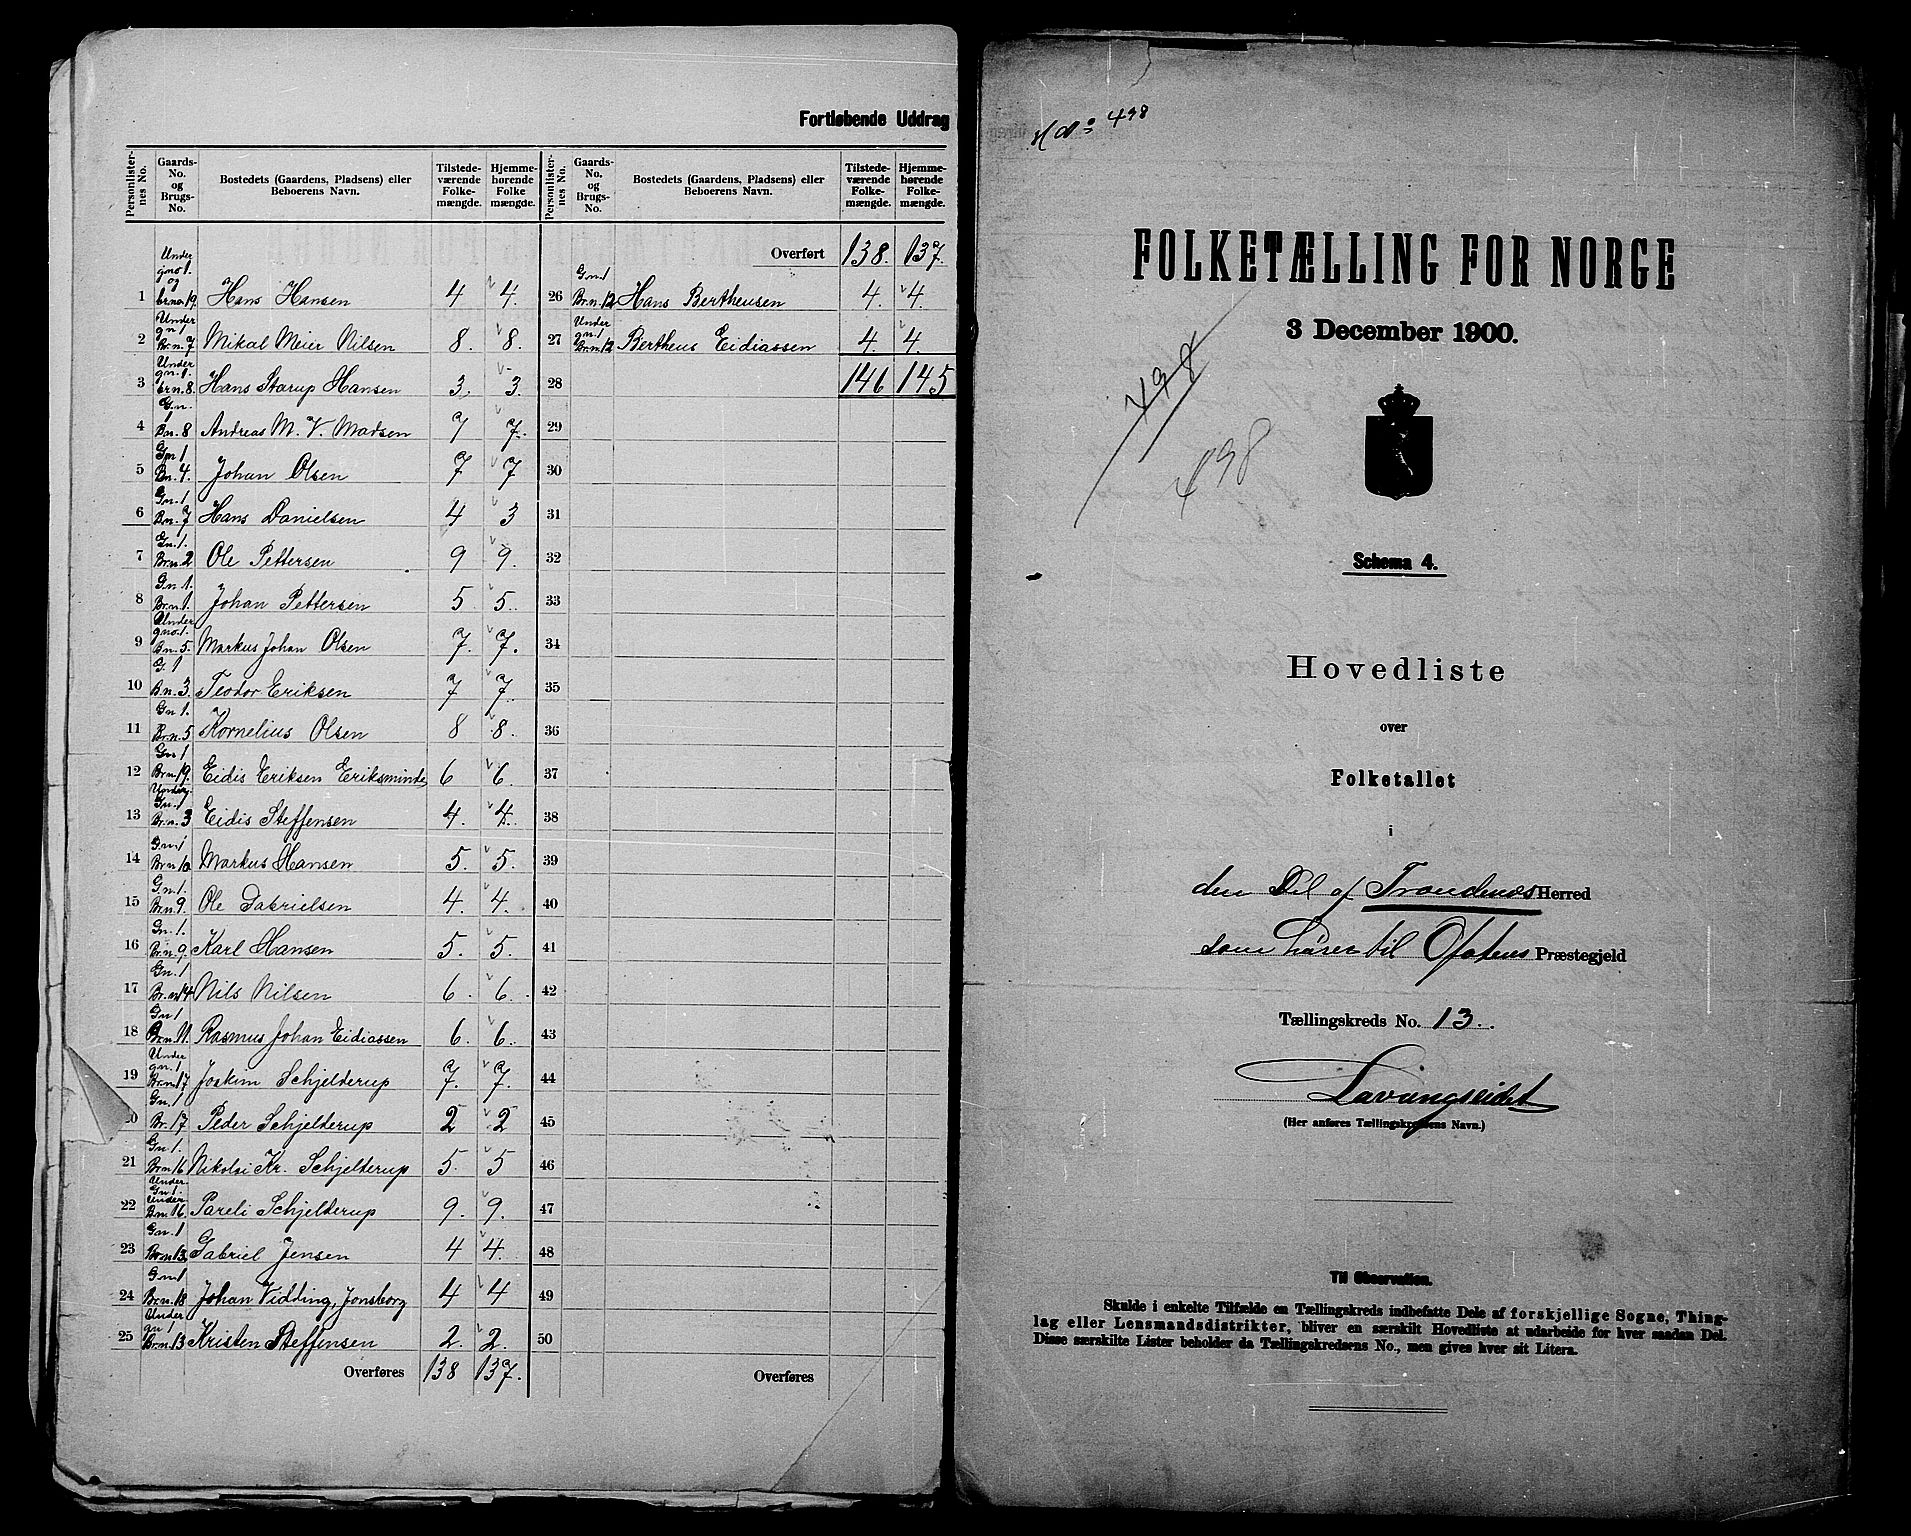 Fortløbende Uddrag
Personlister-nes No. | Gaards-No. og Brugs-No. | Bostedets (Gaardens, Pladsens) eller Beboerens Navn. | Tilstede-værende Folke-mængde. | Hjemme-hørende Folke mængde. | Personlister-nes No. | Gaards-No. og Brugs-No. | Bostedets (Gaardens, Pladsens) eller Beboerens Navn. | Tilstede-værende Folke-mængde. | Hjemme-hørende Folke-mængde.
Overført 138. 137.
1 Under gno 1. og brno. 19. Hans Hansen 4 4. 26 Gn. 1 Br.n. 12 Hans Bertheusen 4. 4.
2 Under gn. 1 Br.n. 7 Mikal Meier Nilsen 8. 8. 27 Under gn. 1 Br.n. 12 Bertheus Eidiassen 4. 4.
3 Under gn. 1. brn. 8. Hans Starup Hansen 3. 3. 28 146 145
4 Gn. 1 Bn. 8 Andreas M. V. Madsen 7 7. 29
5 Gn 1 Bn. 4. Johan Olsen 7 7 30
6 Gn. 1 Bn. 7 Hans Danielsen 4 3 31
7 Gn. 1. Br.n. 2 Ole Pettersen 9 9. 32
8 Gn. 1. Br.n. 1. Johan Pettersen 5 5. 33
9 Under gno. 1. Bn. 5. Markus Johan Olsen 7. 7. 34
10 G. 1 Bn. 3. Teodor Eriksen 7 7. 35
11 Gn 1. Br.n. 5 Kornelius Olsen 8 8. 36
12 Gn 1 Br.n. 19. Eidis Eriksen Eriksminde 6 6. 37
13 Under Gn. 1 Br.n. 3 Eidis Steffensen 4. 4. 38
14 Gn. 1 Br.n. 10 Markus Hansen 5. 5. 39
15 Gn. 1. Br.n. 9. Ole Gabrielsen 4. 4. 40
16 Gn. 1. Br.n. 9. Karl Hansen 5. 5. 41
17 Gn. 1 Br.n. 14 Nils Nilsen 6. 6. 42
18 Gn 1 Br.n. 11. Rasmus Johan Eidiassen 6. 6. 43
19 Under gn. 1 Br.n. 17 Joakim Schjelderup 7. 7. 44
20 Gn. 1 Br. 17 Peder Schjelderup 2 2 45
21 Gn. 1. Br.n. 16 Nikolai Kr. Schjelderup 5. 5 46
22 Under Gn. 1. Under Bn. 16. Pareli Schjelderup 9. 9. 47
23 Gn. 1 Br.n. 13. Gabriel Jensen 4 4. 48
24 Gn 1 Br.n. 18 Johan Vidding, Jonsborg 4 4 49
25 Under gn 1 Br.n. 13 Kristen Steffensen 2. 2. 50
Overføres 138 137. Overføres
498
FOLKETÆLLING FOR NORGE
3 December 1900.
498
498
Schema 4.
Hovedliste
over
Folketallet
i
den Del af Trondenæs Herred
som hører til Ofotens Præstegjeld
Tællingskreds No. 13.
Lavangseidet
(Her anføres Tællingskredsens Navn.)
Til Observation.
Skulde i enkelte Tilfælde en Tællingskreds indbefatte Dele af forskjellige Sogne, Thing-
lag eller Lensmandsdistrikter, bliver en særskilt Hovedliste at udarbeide for hver saadan Del.
Disse særskilte Lister beholder da Tællingskredsens No., men gives hver sit Litera.